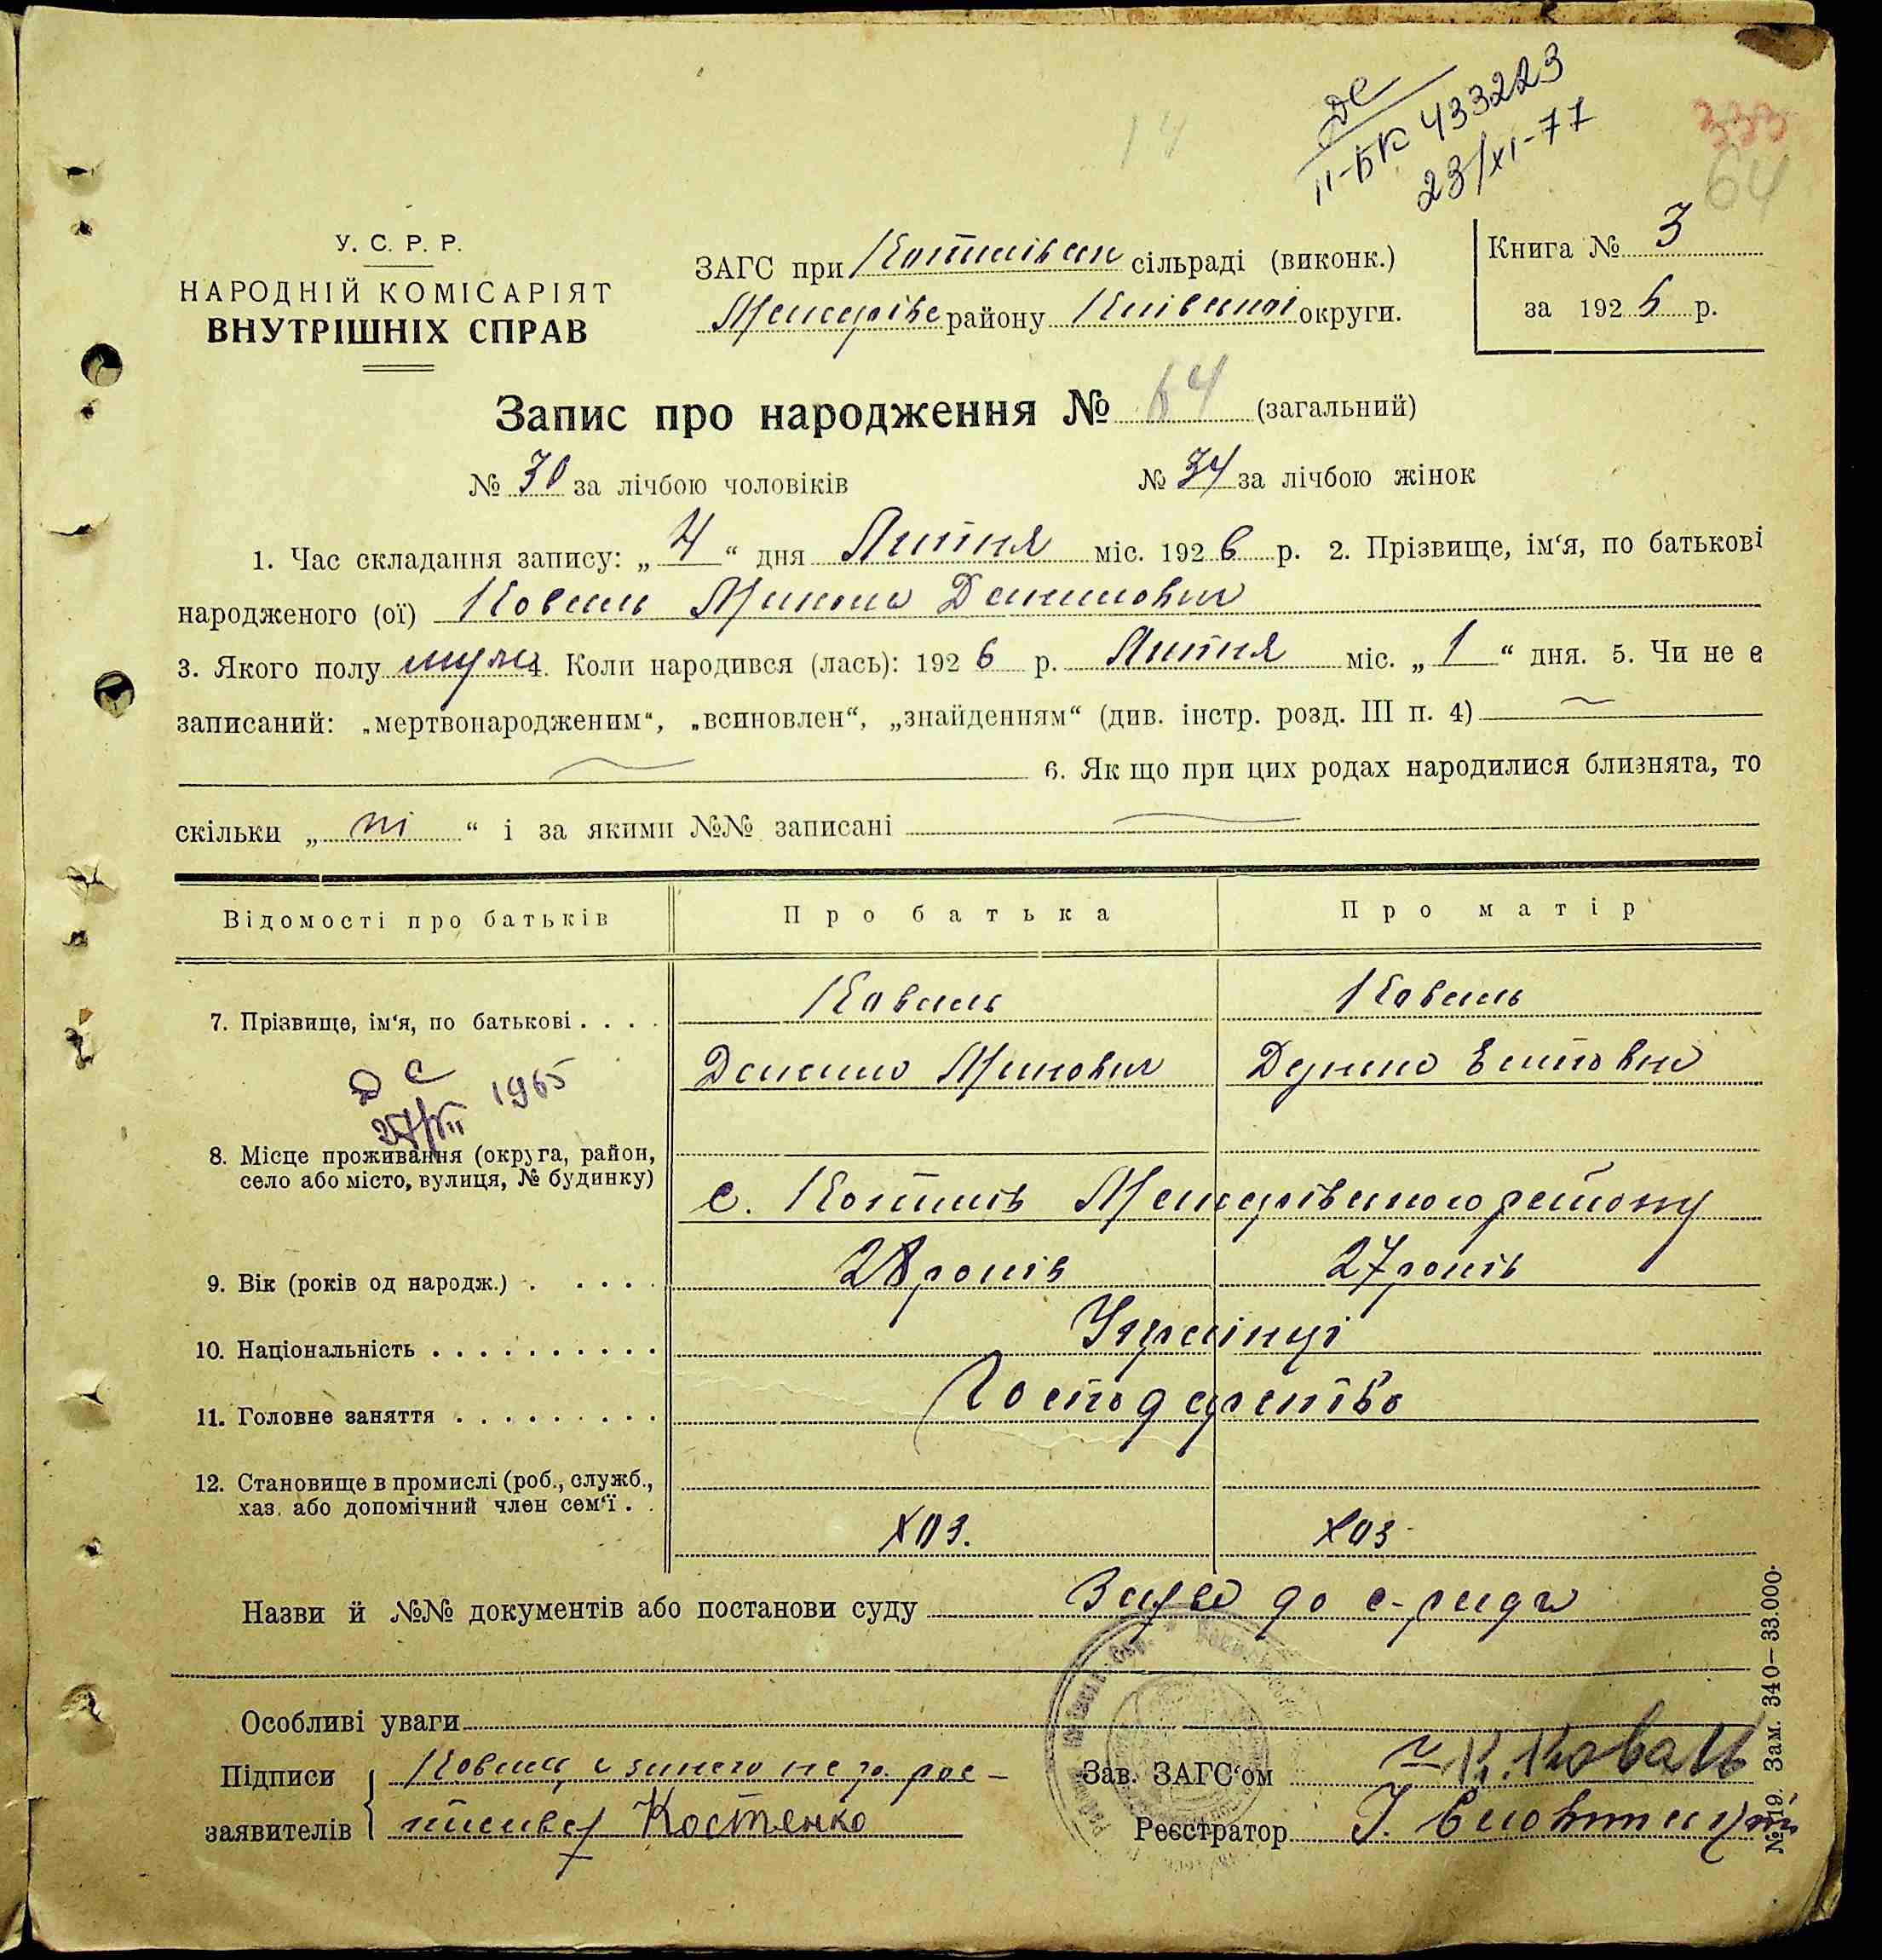 ДС
II-БК 433223
23/XI-77
14
333
64
У. С. Р. Р.
НАРОДНІЙ КОМІСАРІЯТ
ВНУТРІШНІХ СПРАВ
ЗАГС при сільраді (виконк.)
району Київської округи.
Книга № 3
за 1926 р.
Запис про народження № 64 (загальний)
№ 30 за лічбою чоловіків № 34 за лічбою жінок
1. Час складання запису: „ 4 “ дня Липня міс. 1926 р. 2. Прізвище, ім‘я, по батькові
народженого (ої) Коваль Микола Данилович
3. Якого полу муж 4. Коли народився (лась): 1926 р. Липня міс. „ 1 “ дня. 5. Чи не є
записаний: „мертвонародженим“, „всиновлен“, „знайденням“ (див. інстр. розд. III п. 4)
6. Як що при цих родах народилися близнята, то
скільки „ ні “ і за якими №№ записані
Відомості про батьків Про батька Про матір
7. Прізвище, ім‘я, по батькові . . . . Коваль Коваль
Данило
ДС 1965
8. Місце проживання (округа, район,
село або місто, вулиця, № будинку)
с. району
9. Вік (років од народж.) . . . . . 28 років 27 років
10. Національність . . . . . . . . . . Українці
11. Головне заняття . . . . . . . . . Господарство
12. Становище в промислі (роб., служб.,
хаз. або допомічний член сем‘ї . .
хоз. хоз
Назви й №№ документів або постанови суду Заява до с-ради
Особливі уваги
Підписи Коваль, а за нього негр. рос-
заявителів писавсь Костенко
Зав. ЗАГС‘ом К. Коваль
Реєстратор
№ 19. Зам. 340—33.000.